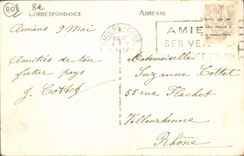 80f 8e
CORRESPONDANCE
ADRESSE
Amiens 9 Mai
AMIE
SES VE
Amitiés de ton
futur pays
J. Cottet
Mademoiselle
Suzanne Cottet
55 rue Flachet
Villeurbanne
Rhône